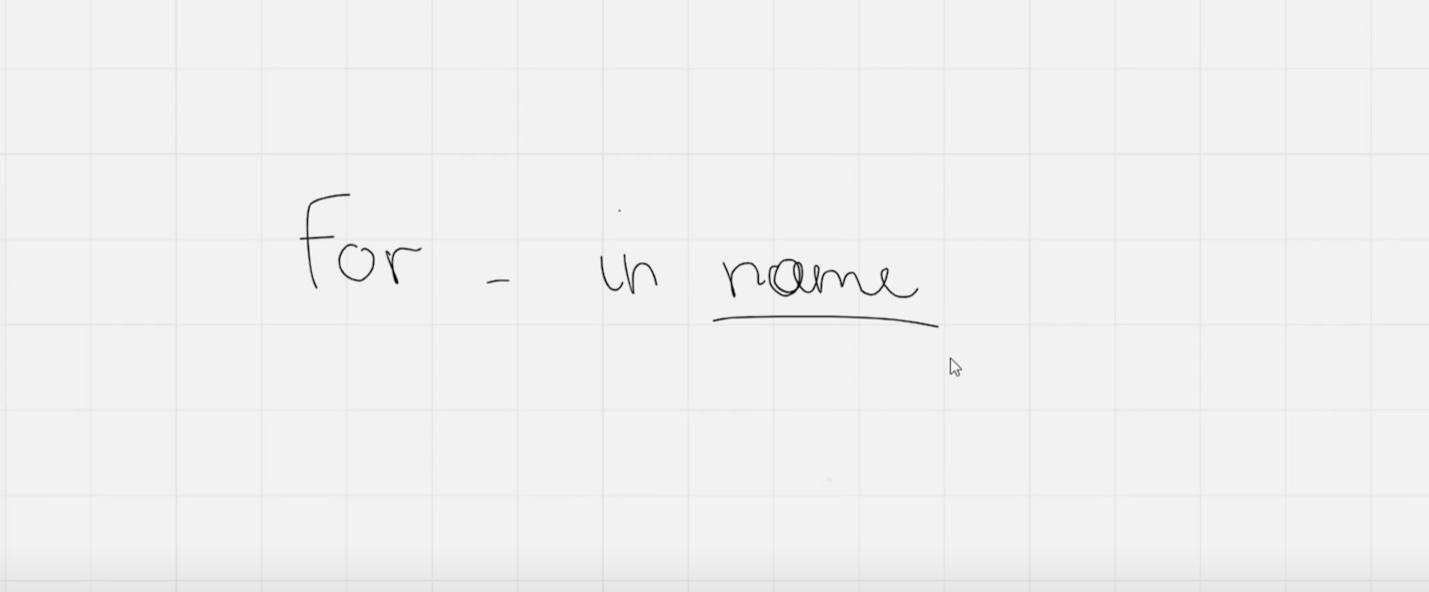 for - in name